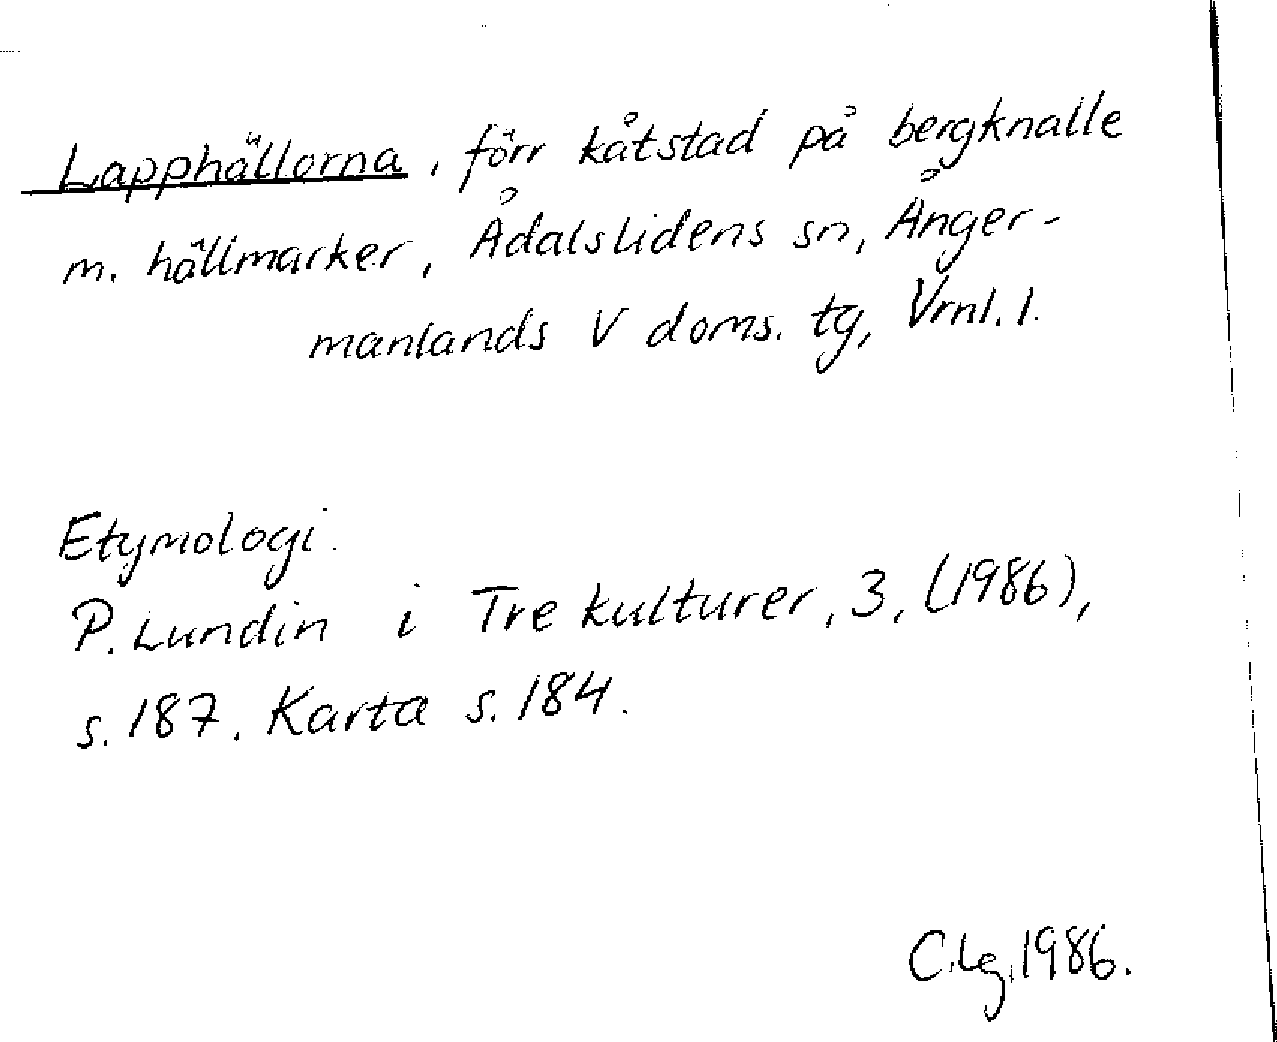 Lapphällorna, förr kåtstad på bergknalle
m. hällmarker, Ådalslidens sn, Ånger-
manlands V doms. tg, Vrnl. l.
Etymologi.
P. Lundin i Tre kulturer, 3, (1986),
s. 187. Karta s. 184.
C.Lg. 1986.